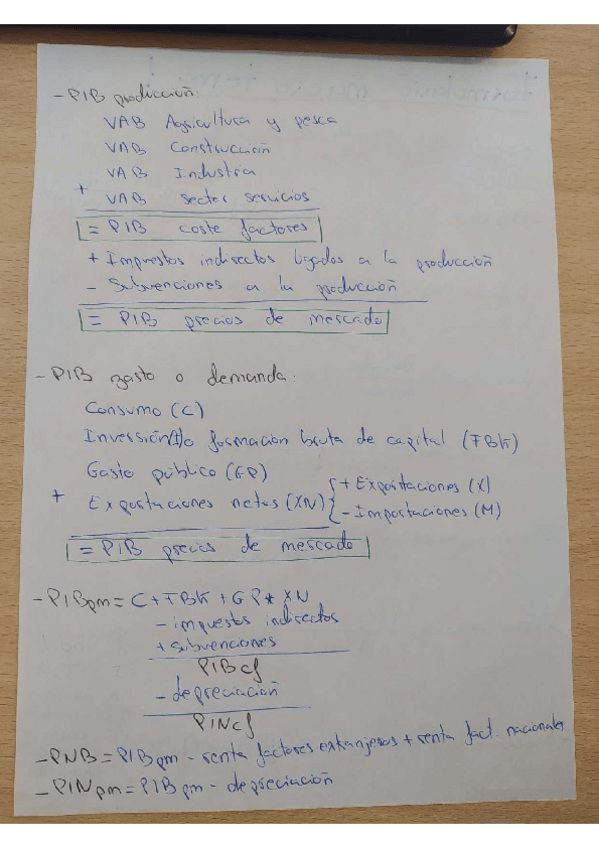 - PIB producción:
VAB Agricultura y pesca
VAB Construcción
VAB Industria
+ VAB sector servicios
= PIB coste factores
+ Impuestos indirectos ligados a la producción
- Subvenciones a la producción
= PIB precios de mercado
- PIB gasto o demanda:
Consumo (C)
Inversión(I)o formacion bruta de capital (FBK)
Gasto público (GP)
+ Exportaciones netas (XN) { + Exportaciones (X)
- Importaciones (M)
= PIB precios de mercado
- PIBpm = C + FBK + GP + XN
- impuestos indirectos
+ subvenciones
PIBcf
- depreciación
PINcf
- PNB = PIBpm - renta factores extranjeros + renta fact. nacionales
- PINpm = PIBpm - depreciación